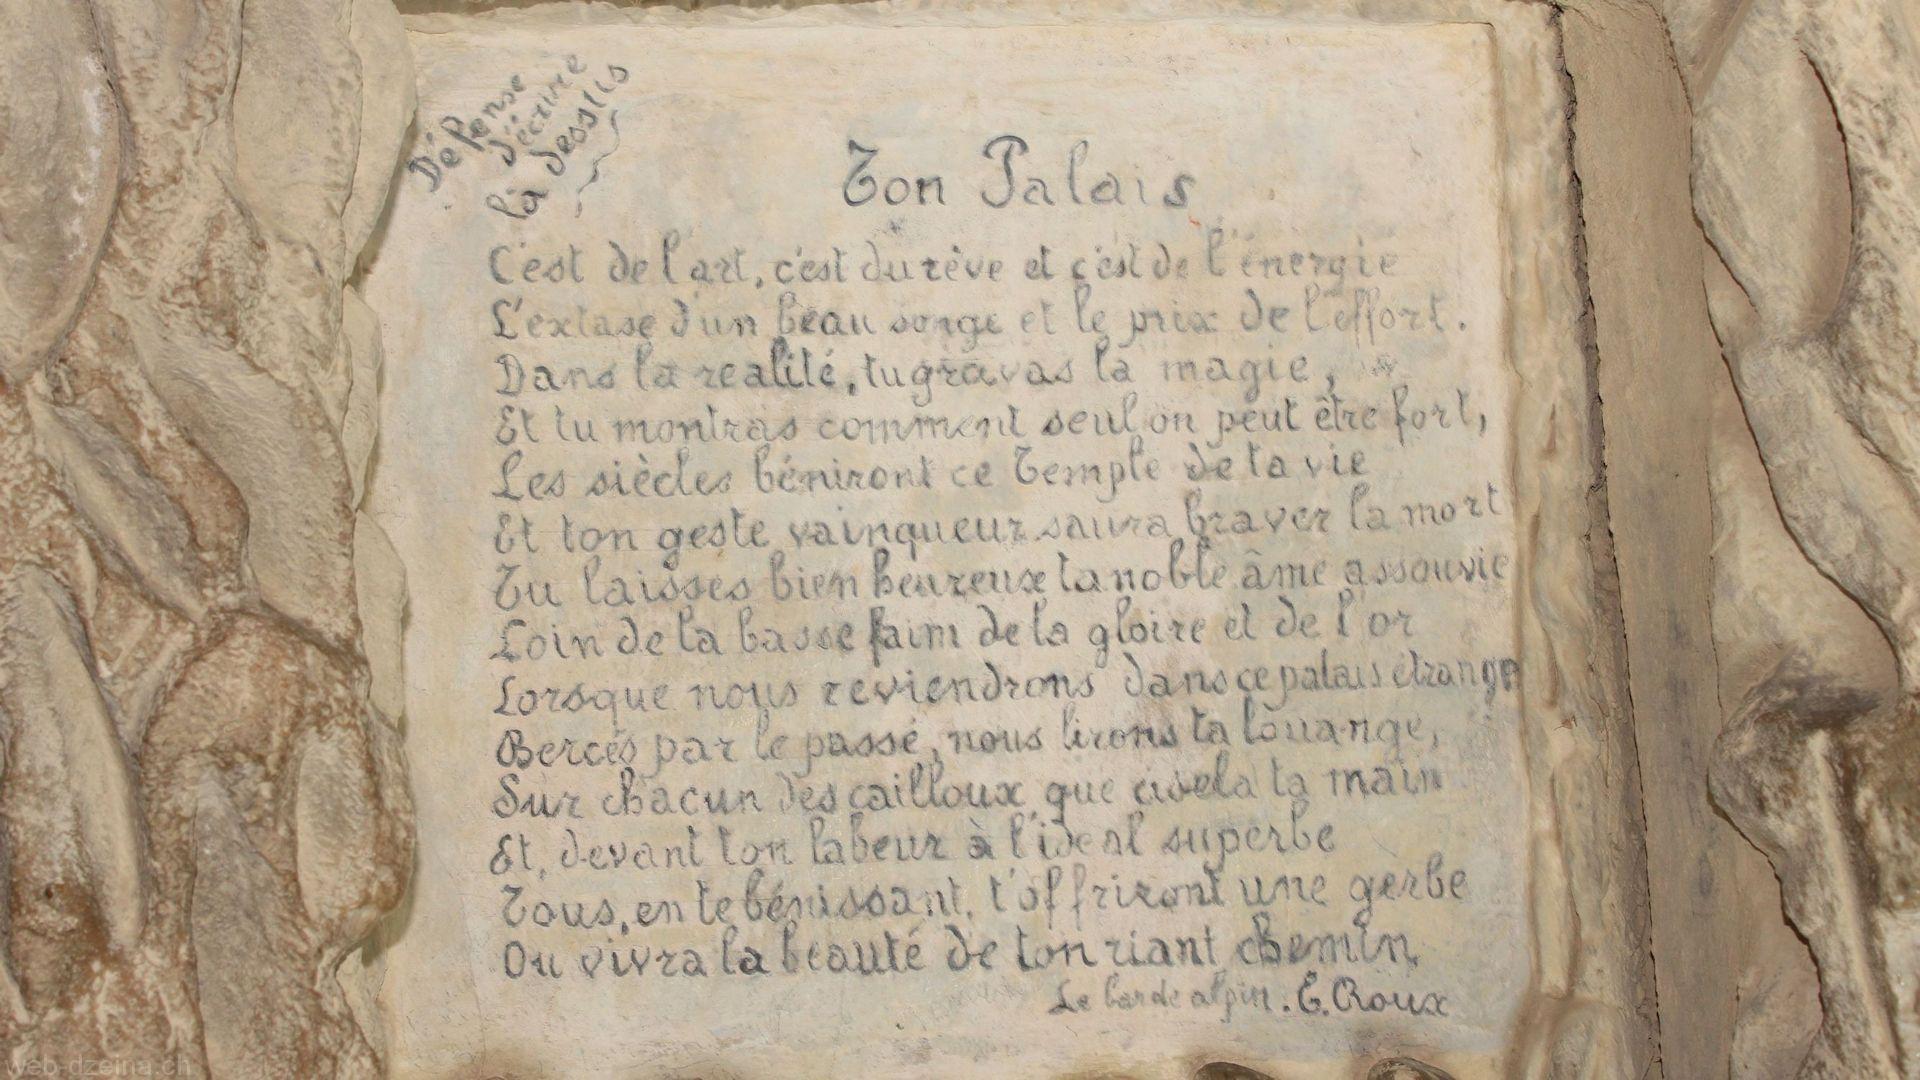 Défense
d'écrire
là dessus
Ton Palais
C'est de l'art, c'est du rêve et c'est de l'énergie
L'extase d'un beau songe et le prix de l'effort.
Dans la realité, tu gravas la magie,
Et tu montras comment seul on peut être fort,
Les siècles béniront ce Temple de ta vie
Et ton geste vainqueur saura braver la mort
Tu laisses bienheureux ta noble âme assouvie
Loin de la basse faim de la gloire et de l'or
Lorsque nous reviendrons dans ce palais étrange
Bercés par le passé, nous lirons ta louange,
Sur chacun des cailloux que cisela ta main
Et, devant ton labeur à l'ideal superbe
Tous, en te bénissant, t'offriront une gerbe
Ou vivra la beauté de ton riant chemin,
Le barde alpin. E. Roux
web-dzeina.ch